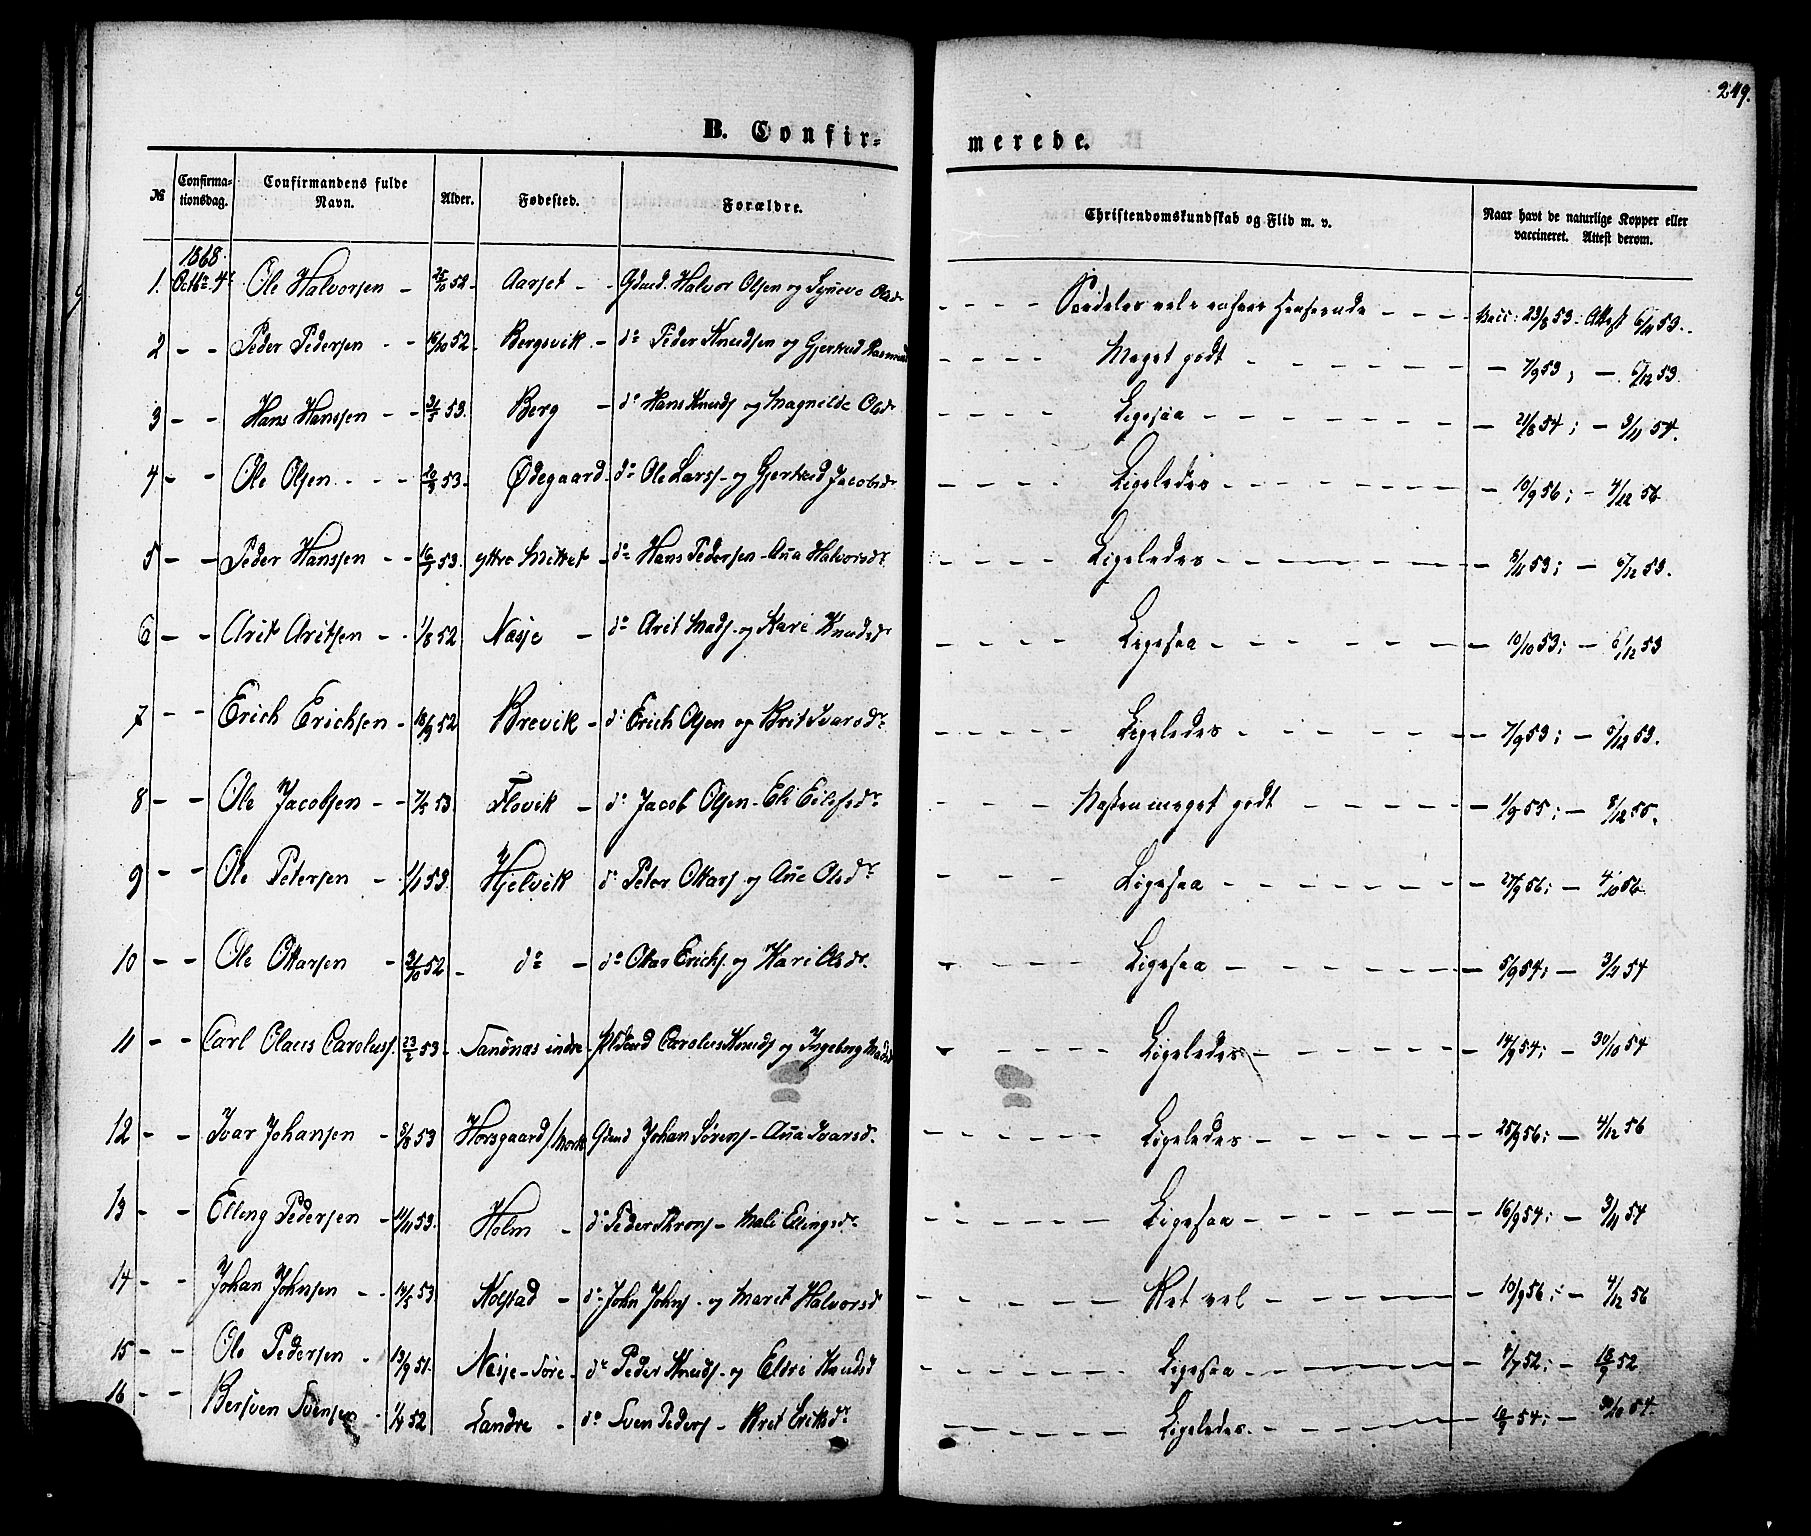 249.
B. Confir-
merede.
№ Confirma-tionsdag. Confirmandens fulde Navn. Alder. Fødested. Forældre. Christendomskundskab og Flid m. v. Naar havt de naturlige Kopper eller vaccineret. Attest derom.
1868.
1. Octbr. 4de Ole Halvorsen - 25/10 52 - Aarset - - Gdmd. Halvor Olsen og Synneve Olsdr - - - - Særdeles vel - - - Vacc: 23/8 53. Attest 6/11 53.
2 - - Peder Pedersen - - 16/10 52. Bergsvik - do Peder Knudsen og Gjertrud - - - - Meget godt - - - - - 7/9 53; - 6/12 53.
3 - - Hans Hanssen - - 53. Berg - do Hans Knuds og Magnilde Olsdr - - - - Ligesaa - - - - - 21/8 54; - 3/11 54.
4 - - Ole Olsen - - - 20/3 53. Ødegaard - do Ole Larss. og Gjertrud Jacobsdr - - - - Ligeledes - - - - - 10/9 56; - 4/12 56
5 - - Peder Hanssen - - 16/7 53. ytre Mittet - do Hans Pedersen - Ana Halvorsdr - - - - Ligeledes - - - - - 8/11 53; - 6/12 53.
6 - - Arit Aritsen - - 1/8 52 Nesje - do Arit Mads. og Kari Knudsdr - - - - Ligesaa - - - - - 10/10 53; - 6/12 53
7 - - Erich Erichsen - 18/9 52 Brevik - do Erich Olsen og Brit Ivarsdr - - - - Ligeledes - - - - - 7/9 53; - 6/12 53.
8 - - Ole Jacobsen - - 7/5 53 Flovik - do Jacob Olsen - Eli Eilefsdr - - - Næsten meget godt - - - - 1/9 55; - 8/12 55.
9 - - Ole Petersen - 1/1 53. Hjelvik do Peter Ottars og Ane Olsdr - - - - Ligesaa - - - - - 27/9 56; - 4/10 56
10 - - Ole Ottarsen - 31/10 52 - do - do Ottar Erichs. og Kari Olsdr. - - - - Ligesaa - - - - - 5/9 54; - 3/11 54
11 - - Carl Olaus Caroluss. 23/2 53 - Sandnæs indre - Carolus Knuds og Ingeborg - - - - Ligeledes - - - - - 14/9 54; - 30/10 54
12 - - Ivar Johansen - 5/8 53 Horsgaard/Mork Gdmd Johan Sørens - Ana Ivarsd. - - - - Ligeledes - - - - - 25/9 56; - 4/12 56
13 - - Elling Pedersen - 11/11 53. Holm - do Peder Throns - Mali Ellingsdr - - - - Ligesaa - - - - - 16/9 54; - 3/11 54
14 - - Johan Johnsen - - 14/5 53 Nolstad - do John Johns - og Marit Halvorsd - - - - Ret vel - - - - - 10/9 56; - 4/12 56
15 - - Ole Pedersen - 13/9 51. Nesje-Søre - do Peder Knuds. og Eldri Knudsd - - - - Ligesaa - - - - 7/7 52; - 18/9 52
16 - - Bersven Svensen - 1/4 52 Landre - do Sven Peders - Brit Eriksdr - - - - Ligeledes - - - - 18/9 54; - 30/10 54